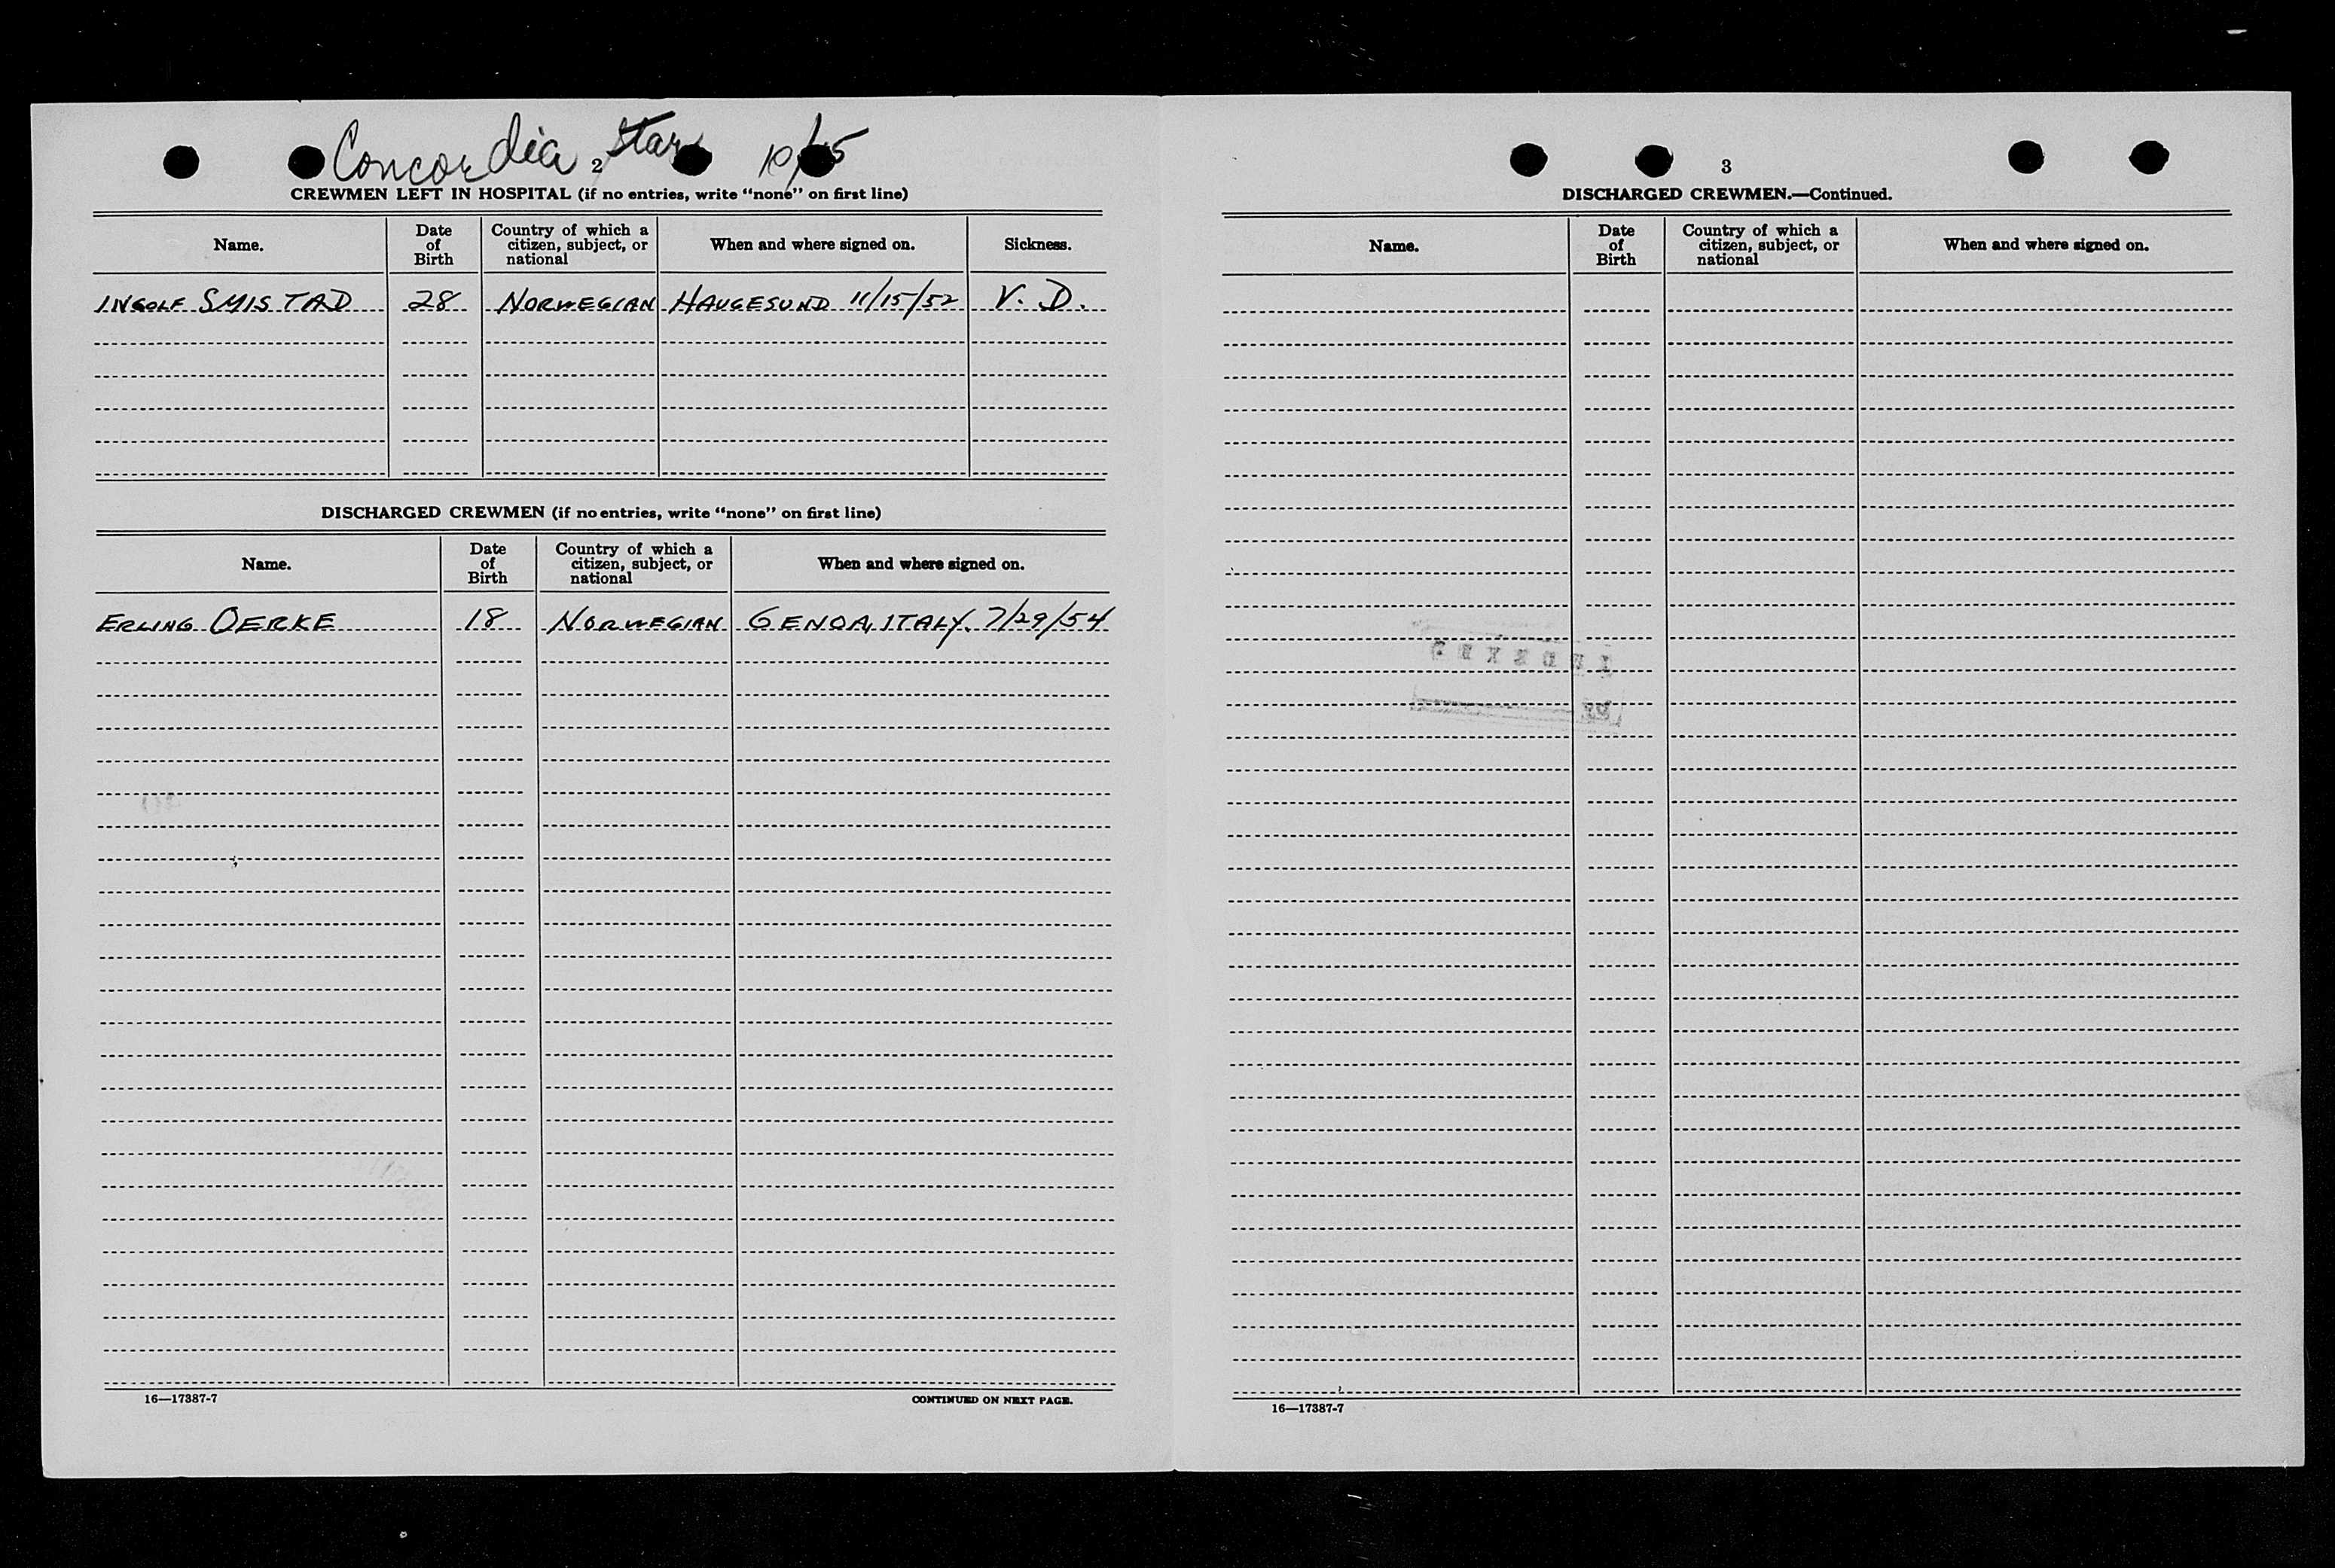 Concordia Star 10/15
2
CREWMEN LEFT IN HOSPITAL (if no entries, write “none” on first line)
Name. Date of Birth Country of which a citizen, subject, or national When and where signed on. Sickness.
INGOLF SMISTAD 28 NORWEGIAN HAUGESUND 11/15/52 V. D.
DISCHARGED CREWMEN (if no entries, write “none” on first line)
Name. Date of Birth Country of which a citizen, subject, or national When and where signed on.
ERLING OERKE 18 NORWEGIAN GENOA, ITALY. 7/29/54
16—17387-7 CONTINUED ON NEXT PAGE.
3
DISCHARGED CREWMEN.—Continued.
Name. Date of Birth Country of which a citizen, subject, or national When and where signed on.
INDEXED
16—17387-7